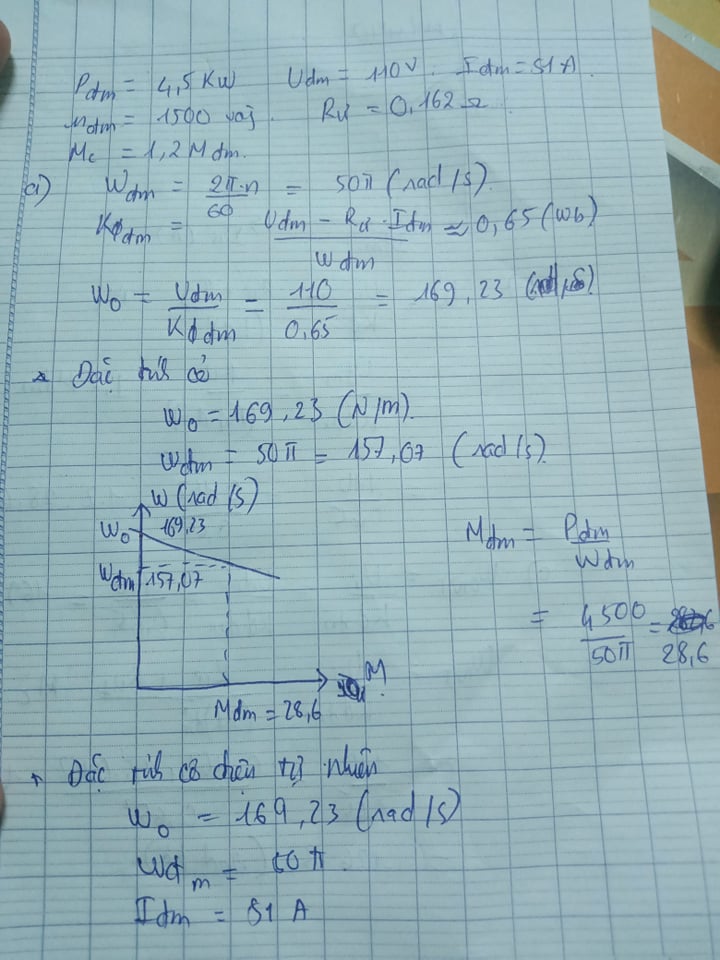 Pđm = 4,5 KW Uđm = 110V. Iđm = 51A.
nđm = 1500 v/g. Rư = 0,162 Ω
Mc = 1,2 Mđm.
a) Wđm = 2π.n / 60 = 50π (rad/s).
Kϕđm = Uđm - Rư . Iđm / Wđm ≈ 0,65 (Wb)
W₀ = Uđm / Kϕđm = 110 / 0,65 = 169,23
* Đặc tính cơ
W₀ = 169,23 (N/m).
Wđm = 50π = 157,07 (rad/s).
W (rad/s)
W₀ 169,23
Wđm 157,07
M
Mđm = 28,6
Mđm = Pđm / Wđm
= 4500 / 50π = 28,6
* Đặc tính cơ điện tự nhiên
W₀ = 169,23 (rad/s)
Wđm = 50π.
Iđm = 51 A